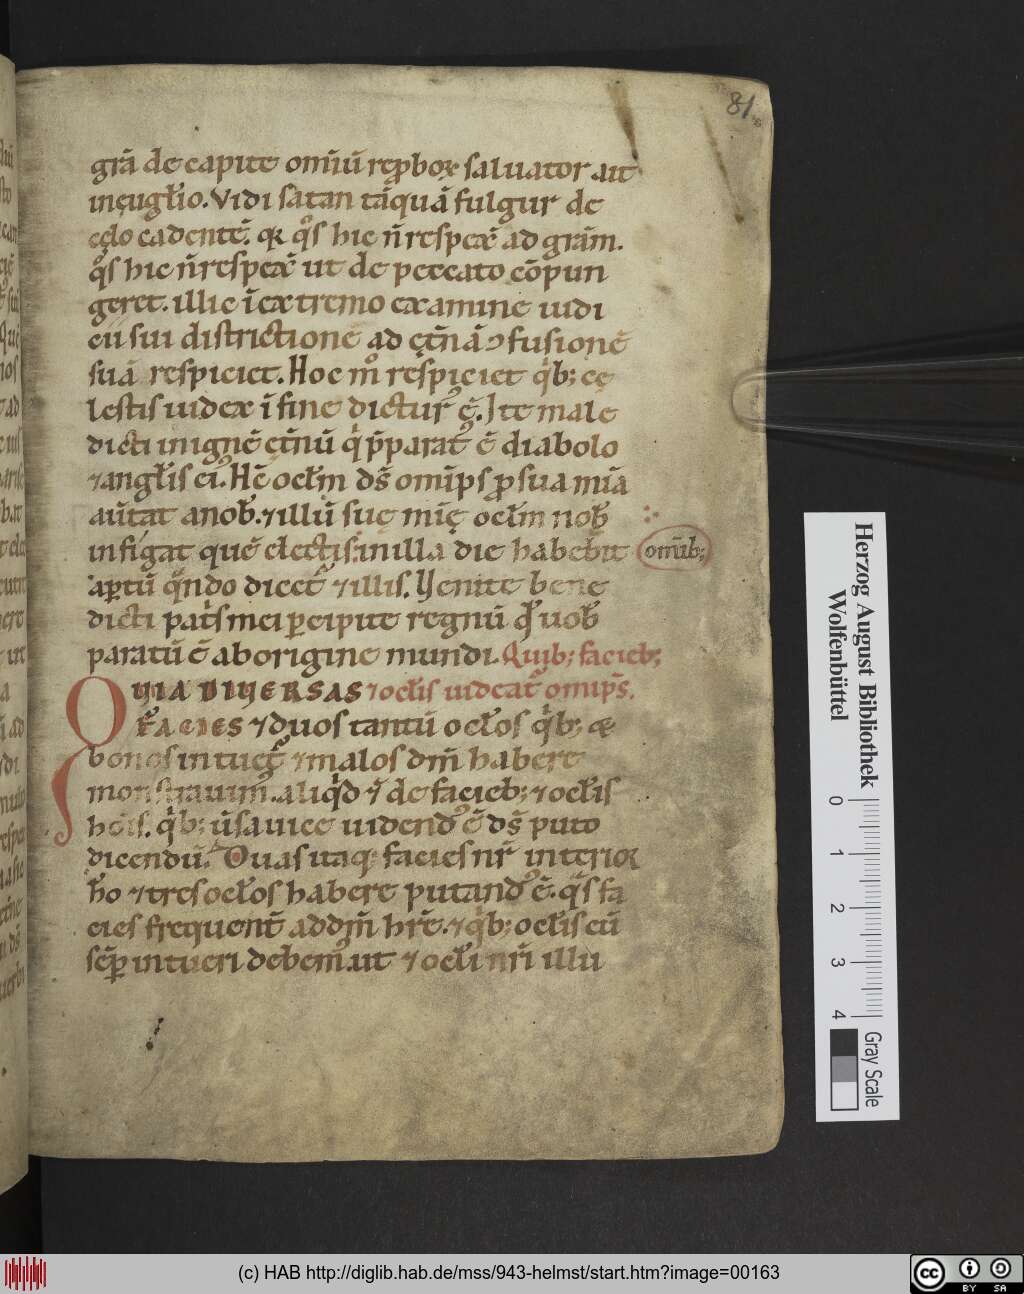 81
grā de capite omīū reꝓboꝝ saluator ait
in euglio. Vidi satan tāquā fulgur de
cęlo cadentē. qꝛ qͦs hic n̄ respexͥ ad grām.
qͦs hic n̄ respexͥ ut de peccato cōpun
geret. illic ī extremo examine uidi
eii sui districtionē ad ęt̄nā ↄfusionē
suā respiciet. Hoc mͦ respiciet qͥb; cę
lestis iudex ī fine dicturꝰ ē. Ite male
dicti in ignē ęt̄nū qͥ p̄paratꝰ ē diabolo
⁊ anglis eiꝰ. Hc̄ oclm ds̄ omīps ꝓ sua mīa
aūtat a nob̄. ⁊ illū suę mīę oclm nob̄
infigat quē electis: in illa die habebit
omīb;
aꝑtū qͣndo dicet᷑ ⁊ illis. Venite bene
dicti patͥs mei ꝑcipite regnū qd̄ uob̄
paratū ē ab origine mundi. Quib; facieb;
QUIA DIVERSAS ⁊ oclis uideat᷑ omīps̄.
FACIES ⁊ duos tantū oclos qͥb; &
bonos intuet᷑ ⁊ malos dm̄ habere
monstrauimꝰ. aliqͥd ⁊ de facieb; ⁊ oclis
hōīs. qͥb; ūsa uice uidendꝰ ē ds̄ puto
dicendū. Duas itaq; facies nr̄ interior
ho ⁊ tres oclos habere putandꝰ ē. qͣs fa
cies frequent̄ ad dm̄ hr̄e. ⁊ qͥb; oclis eū
sēꝑ intueri debemꝰ. ut ⁊ ocli nr̄i illū
Herzog August Bibliothek
Wolfenbüttel
0 1 2 3 4
Gray Scale
(c) HAB http://diglib.hab.de/mss/943-helmst/start.htm?image=00163
cc BY SA